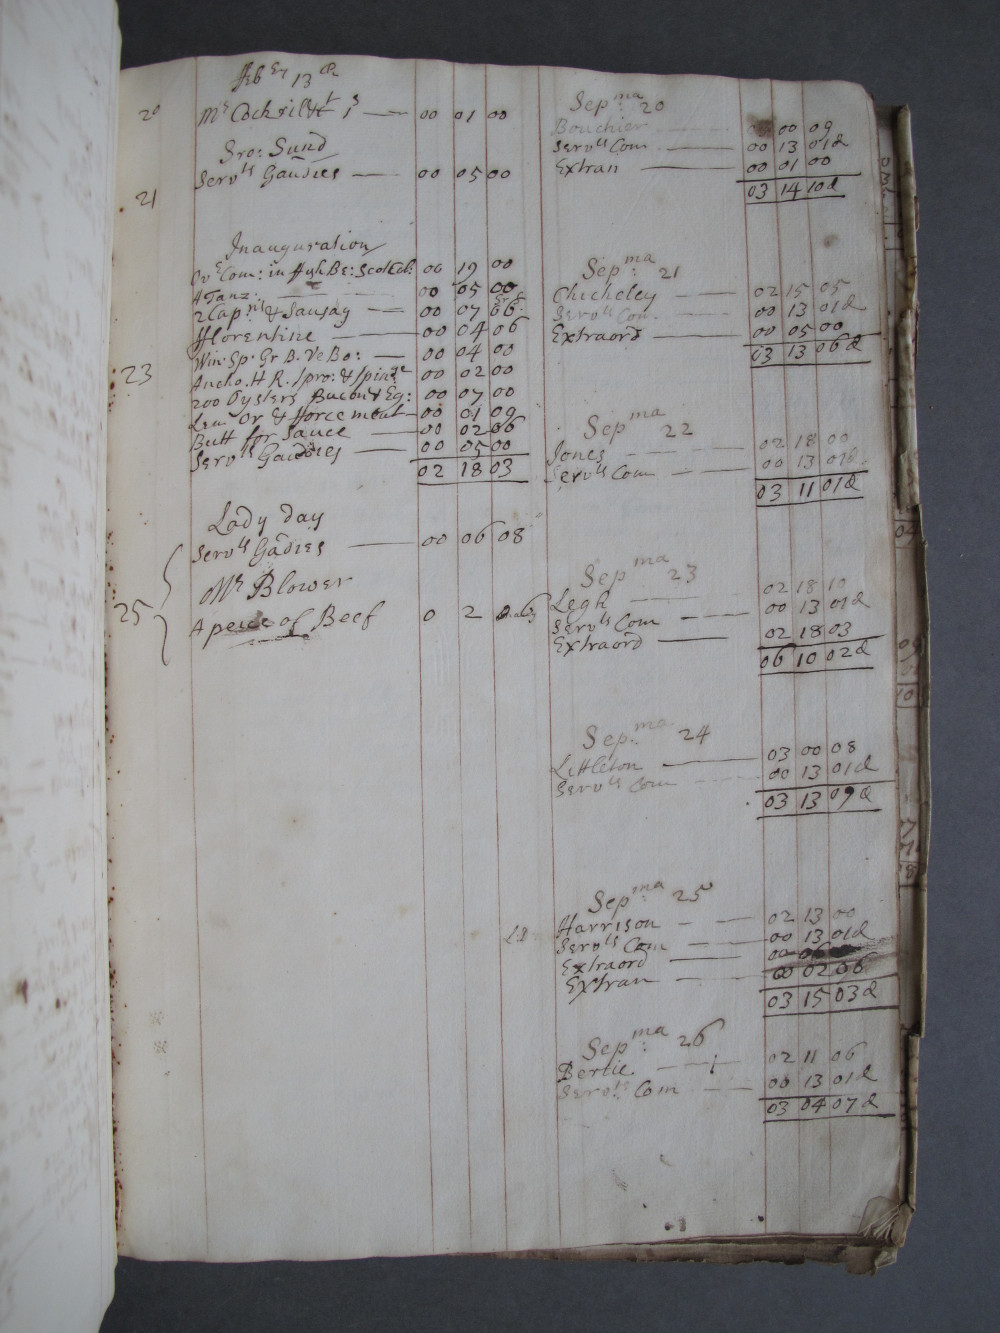 Feb 13
20 Mr Cockril 00 01 00
Bro: Sund
Servts Gaudies 00 05 00
21
Inauguration
Com: in Hyh Be: Scotch: 00 19 00
A Tanz: 00 05 00
2 Capnts & Sausag 00 07 06
Florentine 00 04 06
Win. Sp. Gr B. Ve Bo: 00 04 00
23
Ancho. H R. spro: & spina 00 02 00
200 Oysters Bacon & Eg: 00 07 00
Lem Or & fforce meat 00 01 09
Butt for Sauce 00 02 06
Servts Gaudies 00 05 00
02 18 03
Lady day
Servts Gadies 00 06 08
Mr Blower
25
A peece of Beef 0 2 6
Sepma: 20
Bouchier 00 09
Servts Com 00 13 01d
Extran 00 01 00
03 14 10d
Sepma: 21
Chicheley 02 15 05
Servts Com 00 13 01d
Extraord 00 05 00
03 13 06d
Sepma 22
Jones 02 18 00
Servts Com 00 13 01d
03 11 01d
Sepma 23
Legh 02 18 10
Servts Com 00 13 01d
Extraord 02 18 03
06 10 02d
Sep:ma 24
Littleton 03 00 08
Servts Com 00 13 01d
03 13 09d
Sepma: 25
Harrison 02 13 00
Servts Com 00 13 01d
Extraord 00
Extran 00 02 06
03 15 03d
Sepma: 26
Bertie 02 11 06
Servts Com 00 13 01d
03 04 07d